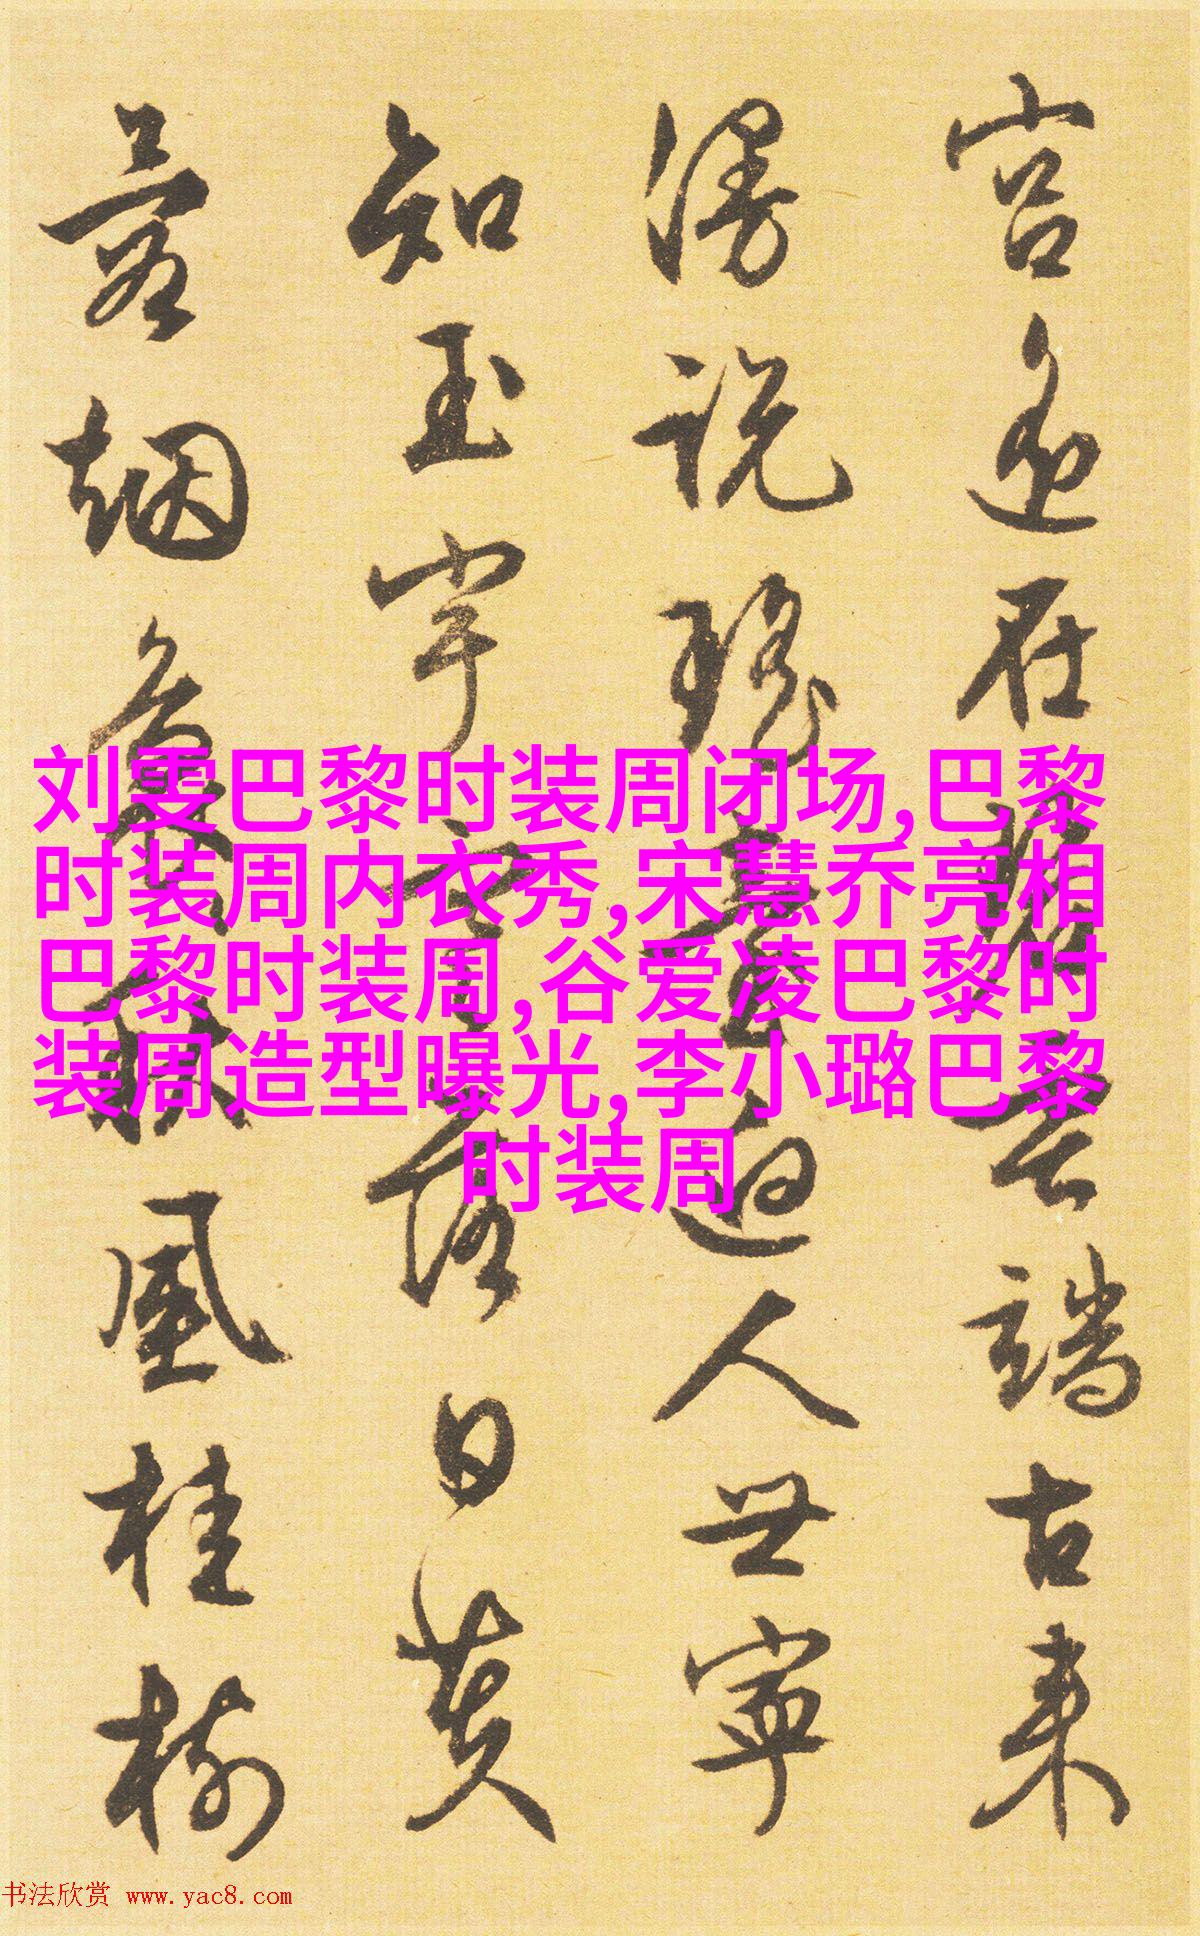 宫迥在碧云端古来
漫说瑶台迥人世宁
知玉宇宽落日黄
烟森林风桂树
刘雯巴黎时装周闭场,巴黎
时装周内衣秀,宋慧乔亮相
巴黎时装周,谷爱凌巴黎时
装周造型曝光,李小璐巴黎
时装周
书法欣赏 www.yac8.com